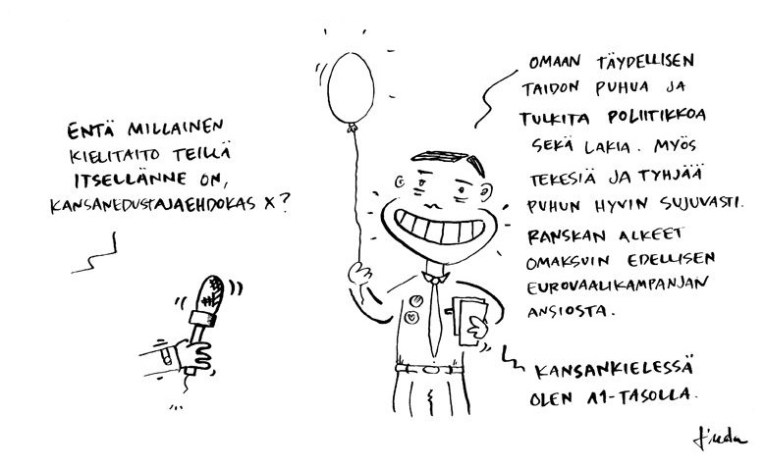 ENTÄ MILLAINEN
KIELITAITO TEILLÄ
ITSELLÄNNE ON,
KANSANEDUSTAJAEHDOKAS X?
OMAAN TÄYDELLISEN
TAIDON PUHUA JA
TULKITA POLIITIKKOA
SEKÄ LAKIA. MYÖS
TEKESIÄ JA TYHJÄÄ
PUHUN HYVIN SUJUVASTI.
RANSKAN ALKEET
OMAKSUIN EDELLISEN
EUROVAALIKAMPANJAN
ANSIOSTA.
KANSANKIELESSÄ
OLEN A1-TASOLLA.